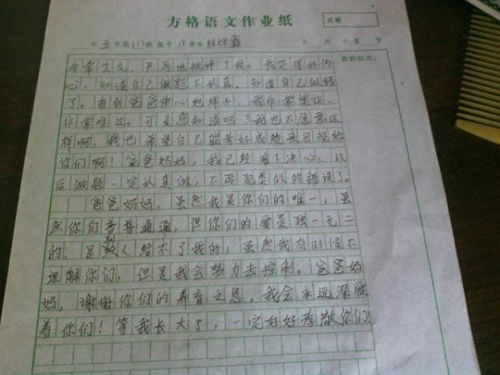 方格语文作业纸
成绩
非常生气，严厉地批评了我。我哭得好伤
心，知道自己做题不认真，知道自己做错
了。看到爸爸伤心地样子，我非常懊悔、
非常难过。可是您知道吗？我也不愿意这
样啊，我也希望自己能考好成绩来回报给
你们啊！爸爸妈妈，我已经暗下决心，以
后做题一定认真做，不再犯类似的错误了。
爸爸妈妈，虽然我是你们的唯一，虽
然你们普普通通，但你们的爱是独一无二
的，是别人给不了我的，虽然我有时候不
理解你们，但是我会努力去控制。爸爸妈
妈，谢谢你们的养育之恩，我会永远深爱
着你们！等我长大了，一定好好孝敬你们